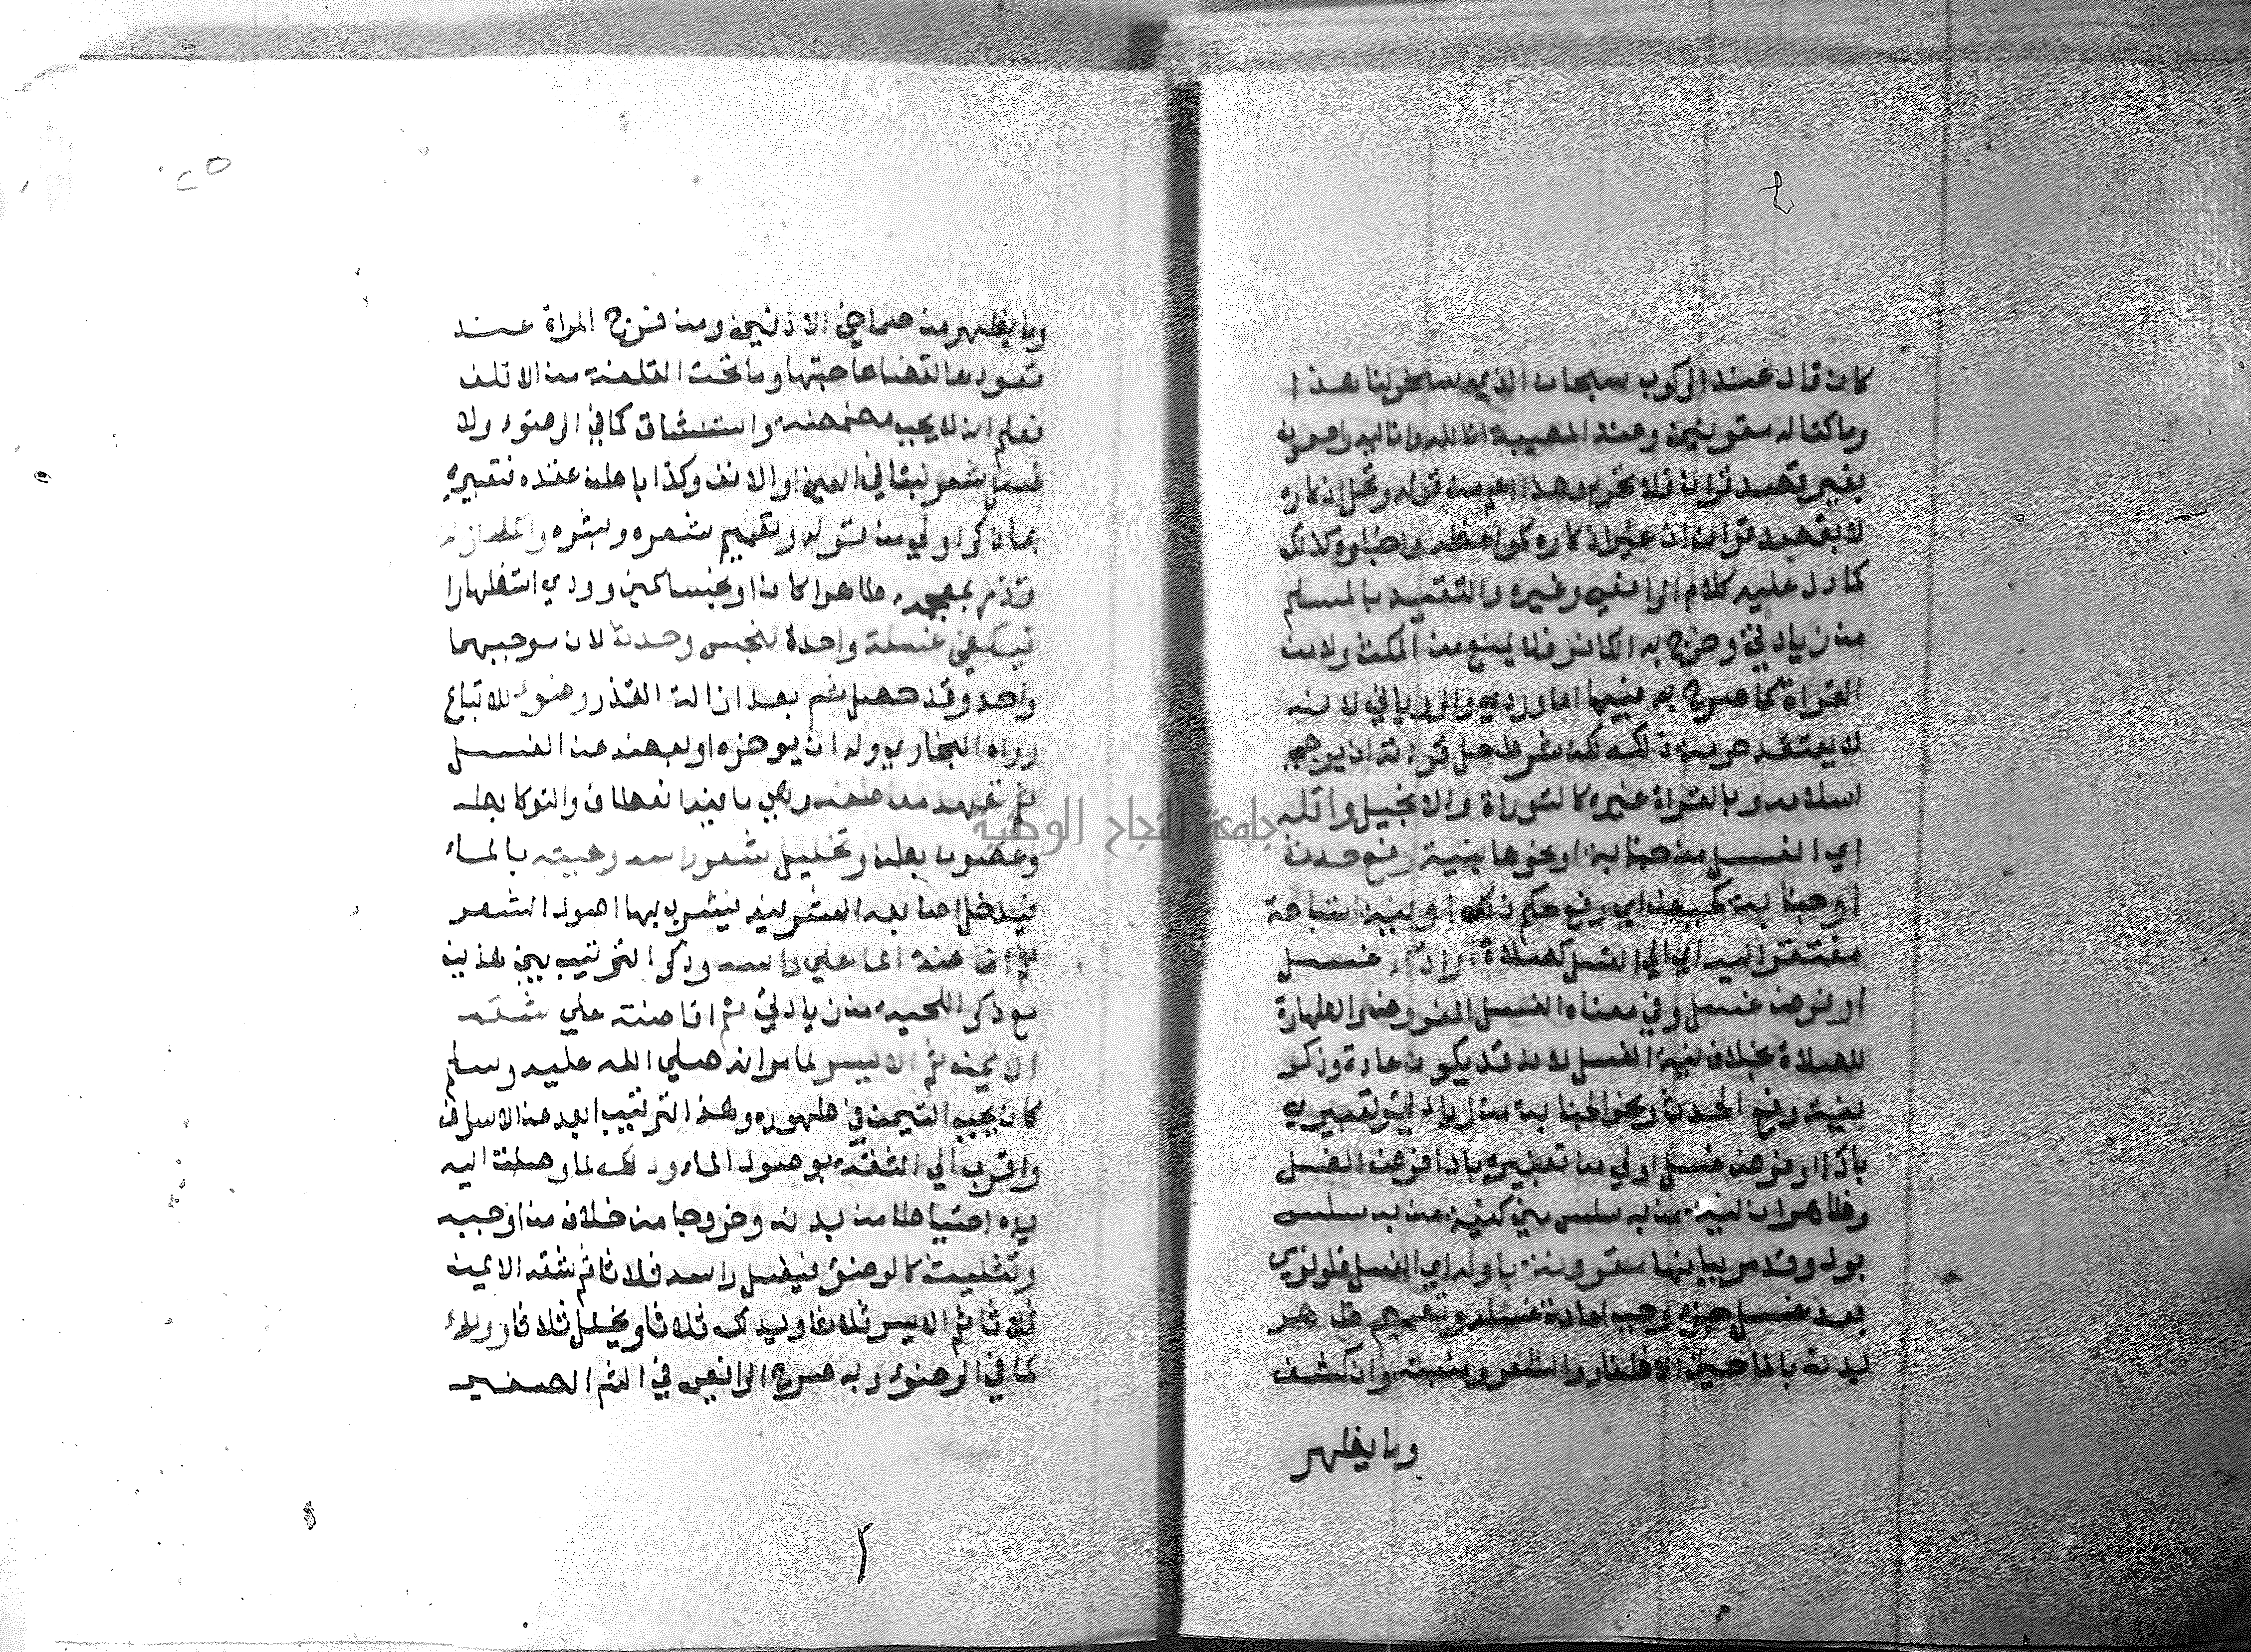 كان قال عند الركوب سبحان الذي سخر لنا هذا
وما كنا له مقرنين وعند المصيبة انا لله وانا اليه راجعون
بغير قصد قران فلا تحرم وهذا اعم من قوله وتحل اذكاره
لا بقصد قران اذ غير اذكاره كمواعظه واخباره كذلك
كما دل عليه كلام الرافعي وغيره والتقييد بالمسلم
من زيادتي وخرج به الكافر فلا يمنع من المكث ولا من
القراة كما صرح به فيهما الماوردي والروياني لانه
لا يعتقد حرمة ذلك لكن شرط حل قراته ان يرجي
اسلامه وبالقراة غيره كالتوراة والانجيل واقله
اي الغسل من جنابة او نحوها بنية رفع حدث
او جنابة كحيض اي رفع حكم ذلك او بنية استباحة
مفتقر اليه اي الي الغسل كصلاة او اداء غسل
او فرض غسل وفي معناه الغسل المفروض والطهارة
للصلاة بخلاف نية الغسل لانه قد يكون عادة وذكر
بنية رفع الحدث ونحو الجنابة من زيادتي وتعبيري
باداا وفرض غسل اولي من تعبيره بادا فرض الغسل
وظاهر ان نية من به سلس مني كنية من به سلس
بول وقد مر بيانها مقرونة باوله اي الغسل فلو نوي
بعد غسل جزء وجب اعادة غسله وتعميم ظاهر
بدنه بالما حتي الاظفار والشعر ومنبته وان كشف
وما يظهر
وما يظهر من صماخي الاذنين ومن فرج المراة عند
قعودها لقضا حاجتها وما تحت القلفة من الاقلف
فعلم انه لا يجب مضمضة واستنشاق كما في الوضوء ولا
غسل شعر نبتا في العين او الانف وكذا باطن عقده فتعبيري
بما ذكر اولي من قوله وتعميم شعره وبشره واكمله ازالة
قذر بمعجمة طاهرا كان او نجسا كمني وودي استظهارا
فيكفي غسلة واحدة لنجس وحدث لان موجبهما
واحد وقد حصل ثم بعد ازالة القذر وضوء للاتباع
رواه البخاري وله ان يوخره او بعضه عن الغسل
ثم تعهد معاطفه وهي ما فيه انعطاف والتوا كابطه
وغضون بطن وتخليل شعر راسه ولحيته بالماء
فيدخل اصابعه العشر فيه فيشرب بها اصول الشعر
ثم افاضة الما علي راسه وذكر الترتيب بين هذين
مع ذكر اللحية من زيادتي ثم افاضته علي شقه
الايمن ثم الايسر لما مر انه صلي الله عليه وسلم
كان يحب التيمن في طهوره وهذا الترتيب ابعد عن الاسراف
واقرب الي الثقة بوصول الماء ودلك لما وصلت اليه
يده احتياطا من بدنه وخروجا من خلاف من اوجبه
وتثليث كالوضوء فيغسل راسه ثلاثا ثم شقه الايمن
ثلاثا ثم الايسر ثلاثا ويدلك ثلاثا ويخلل ثلاثا وولاء
كما في الوضوء وبه صرح الرافعي في الشرح الصغير
جامعة النجاح الوطنية